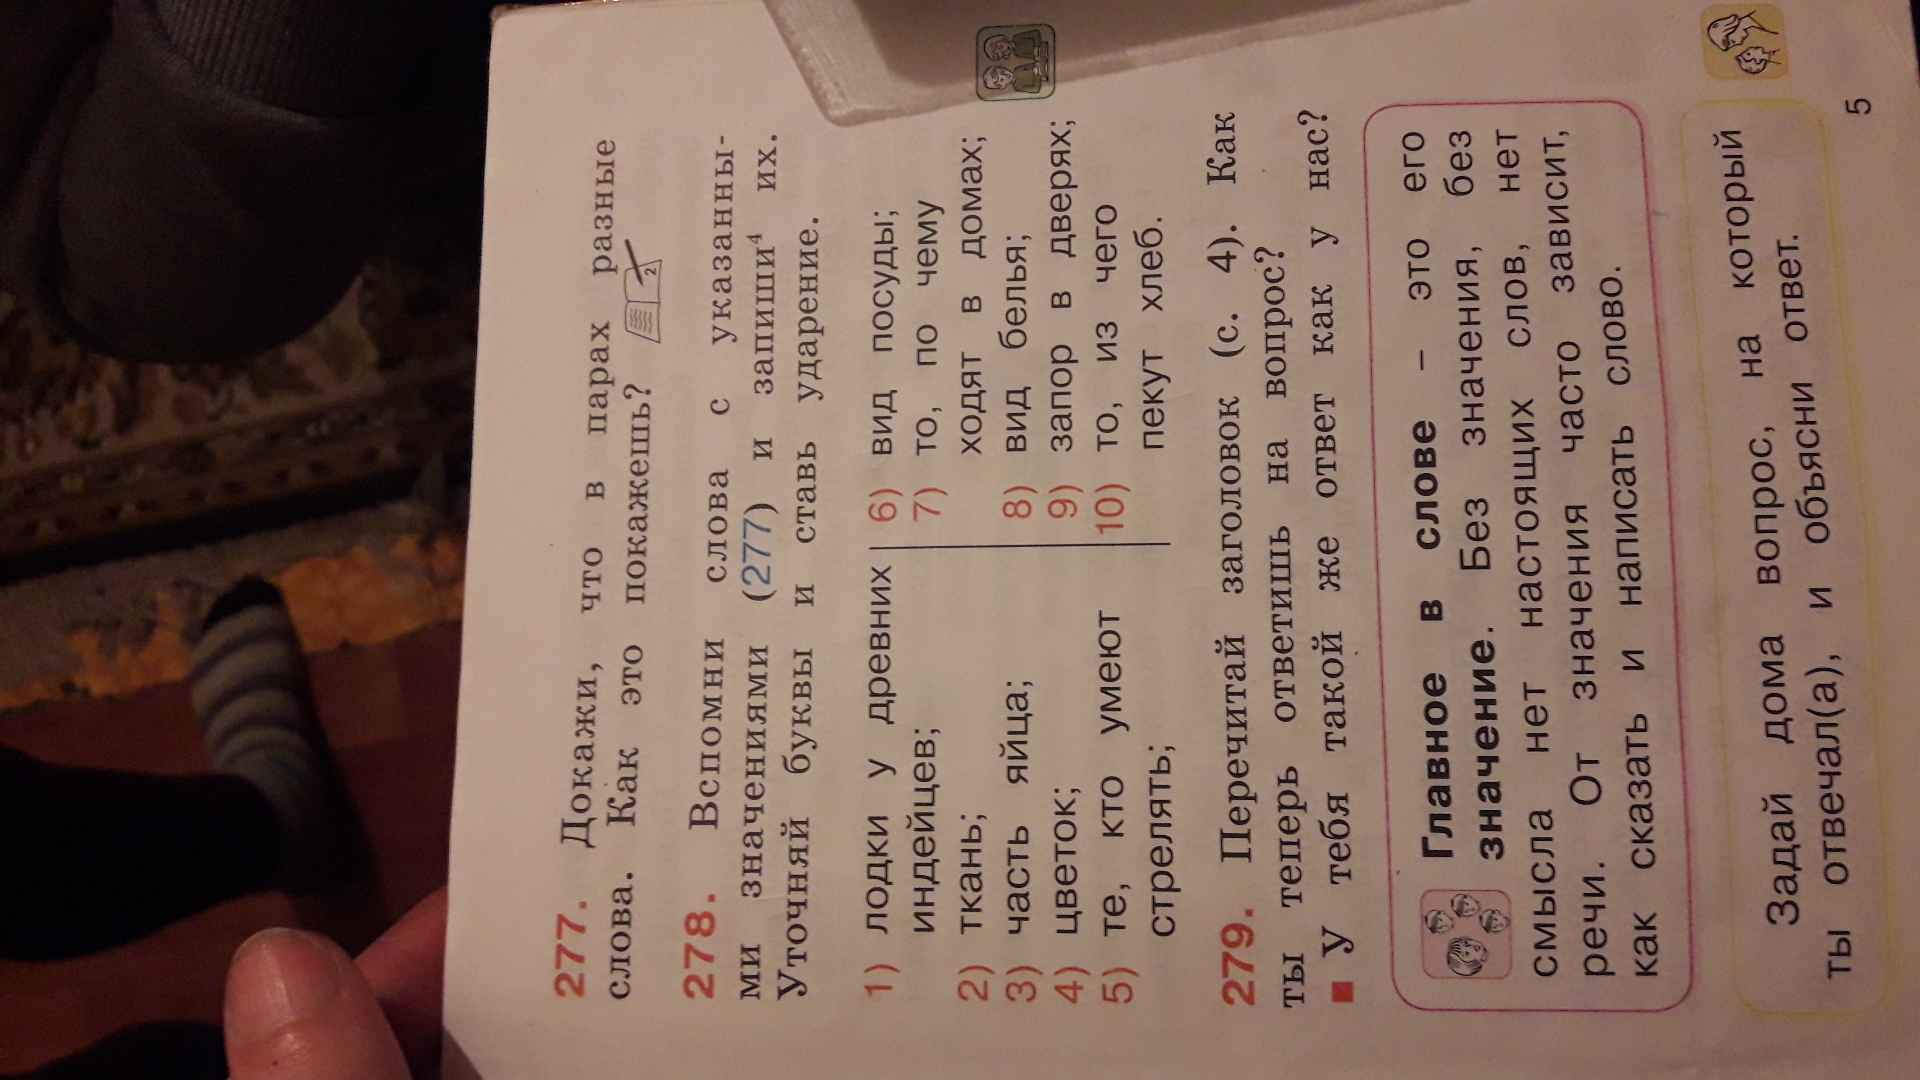 277. Докажи, что в парах разные
слова. Как это покажешь? 2
278. Вспомни слова с указанны-
ми значениями (277) и запиши⁴ их.
Уточняй буквы и ставь ударение.
1) лодки у древних
индейцев;
2) ткань;
3) часть яйца;
4) цветок;
5) те, кто умеют
стрелять;
6) вид посуды;
7) то, по чему
ходят в домах;
8) вид белья;
9) запор в дверях;
10) то, из чего
пекут хлеб.
279. Перечитай заголовок (с. 4). Как
ты теперь ответишь на вопрос?
У тебя такой же ответ как у нас?
Главное в слове – это его
значение. Без значения, без
смысла нет настоящих слов, нет
речи. От значения часто зависит,
как сказать и написать слово.
Задай дома вопрос, на который
ты отвечал(а), и объясни ответ.
5